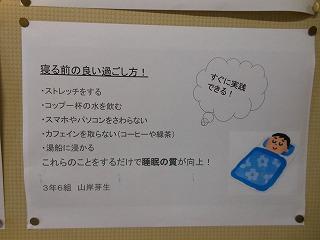 寝る前の良い過ごし方！
すぐに実践
できる！
・ストレッチをする
・コップ一杯の水を飲む
・スマホやパソコンをさわらない
・カフェインを取らない（コーヒーや緑茶）
・湯船に浸かる
これらのことをするだけで睡眠の質が向上！
３年６組　山岸芽生